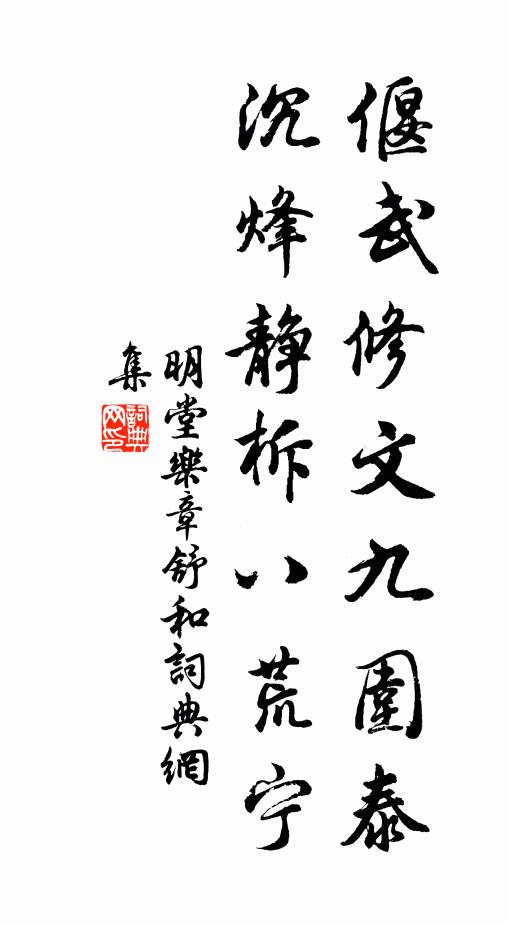 偃武修文九圍泰
沉烽静柝八荒宁
明堂樂章舒和詞典網
集
詞典
网印